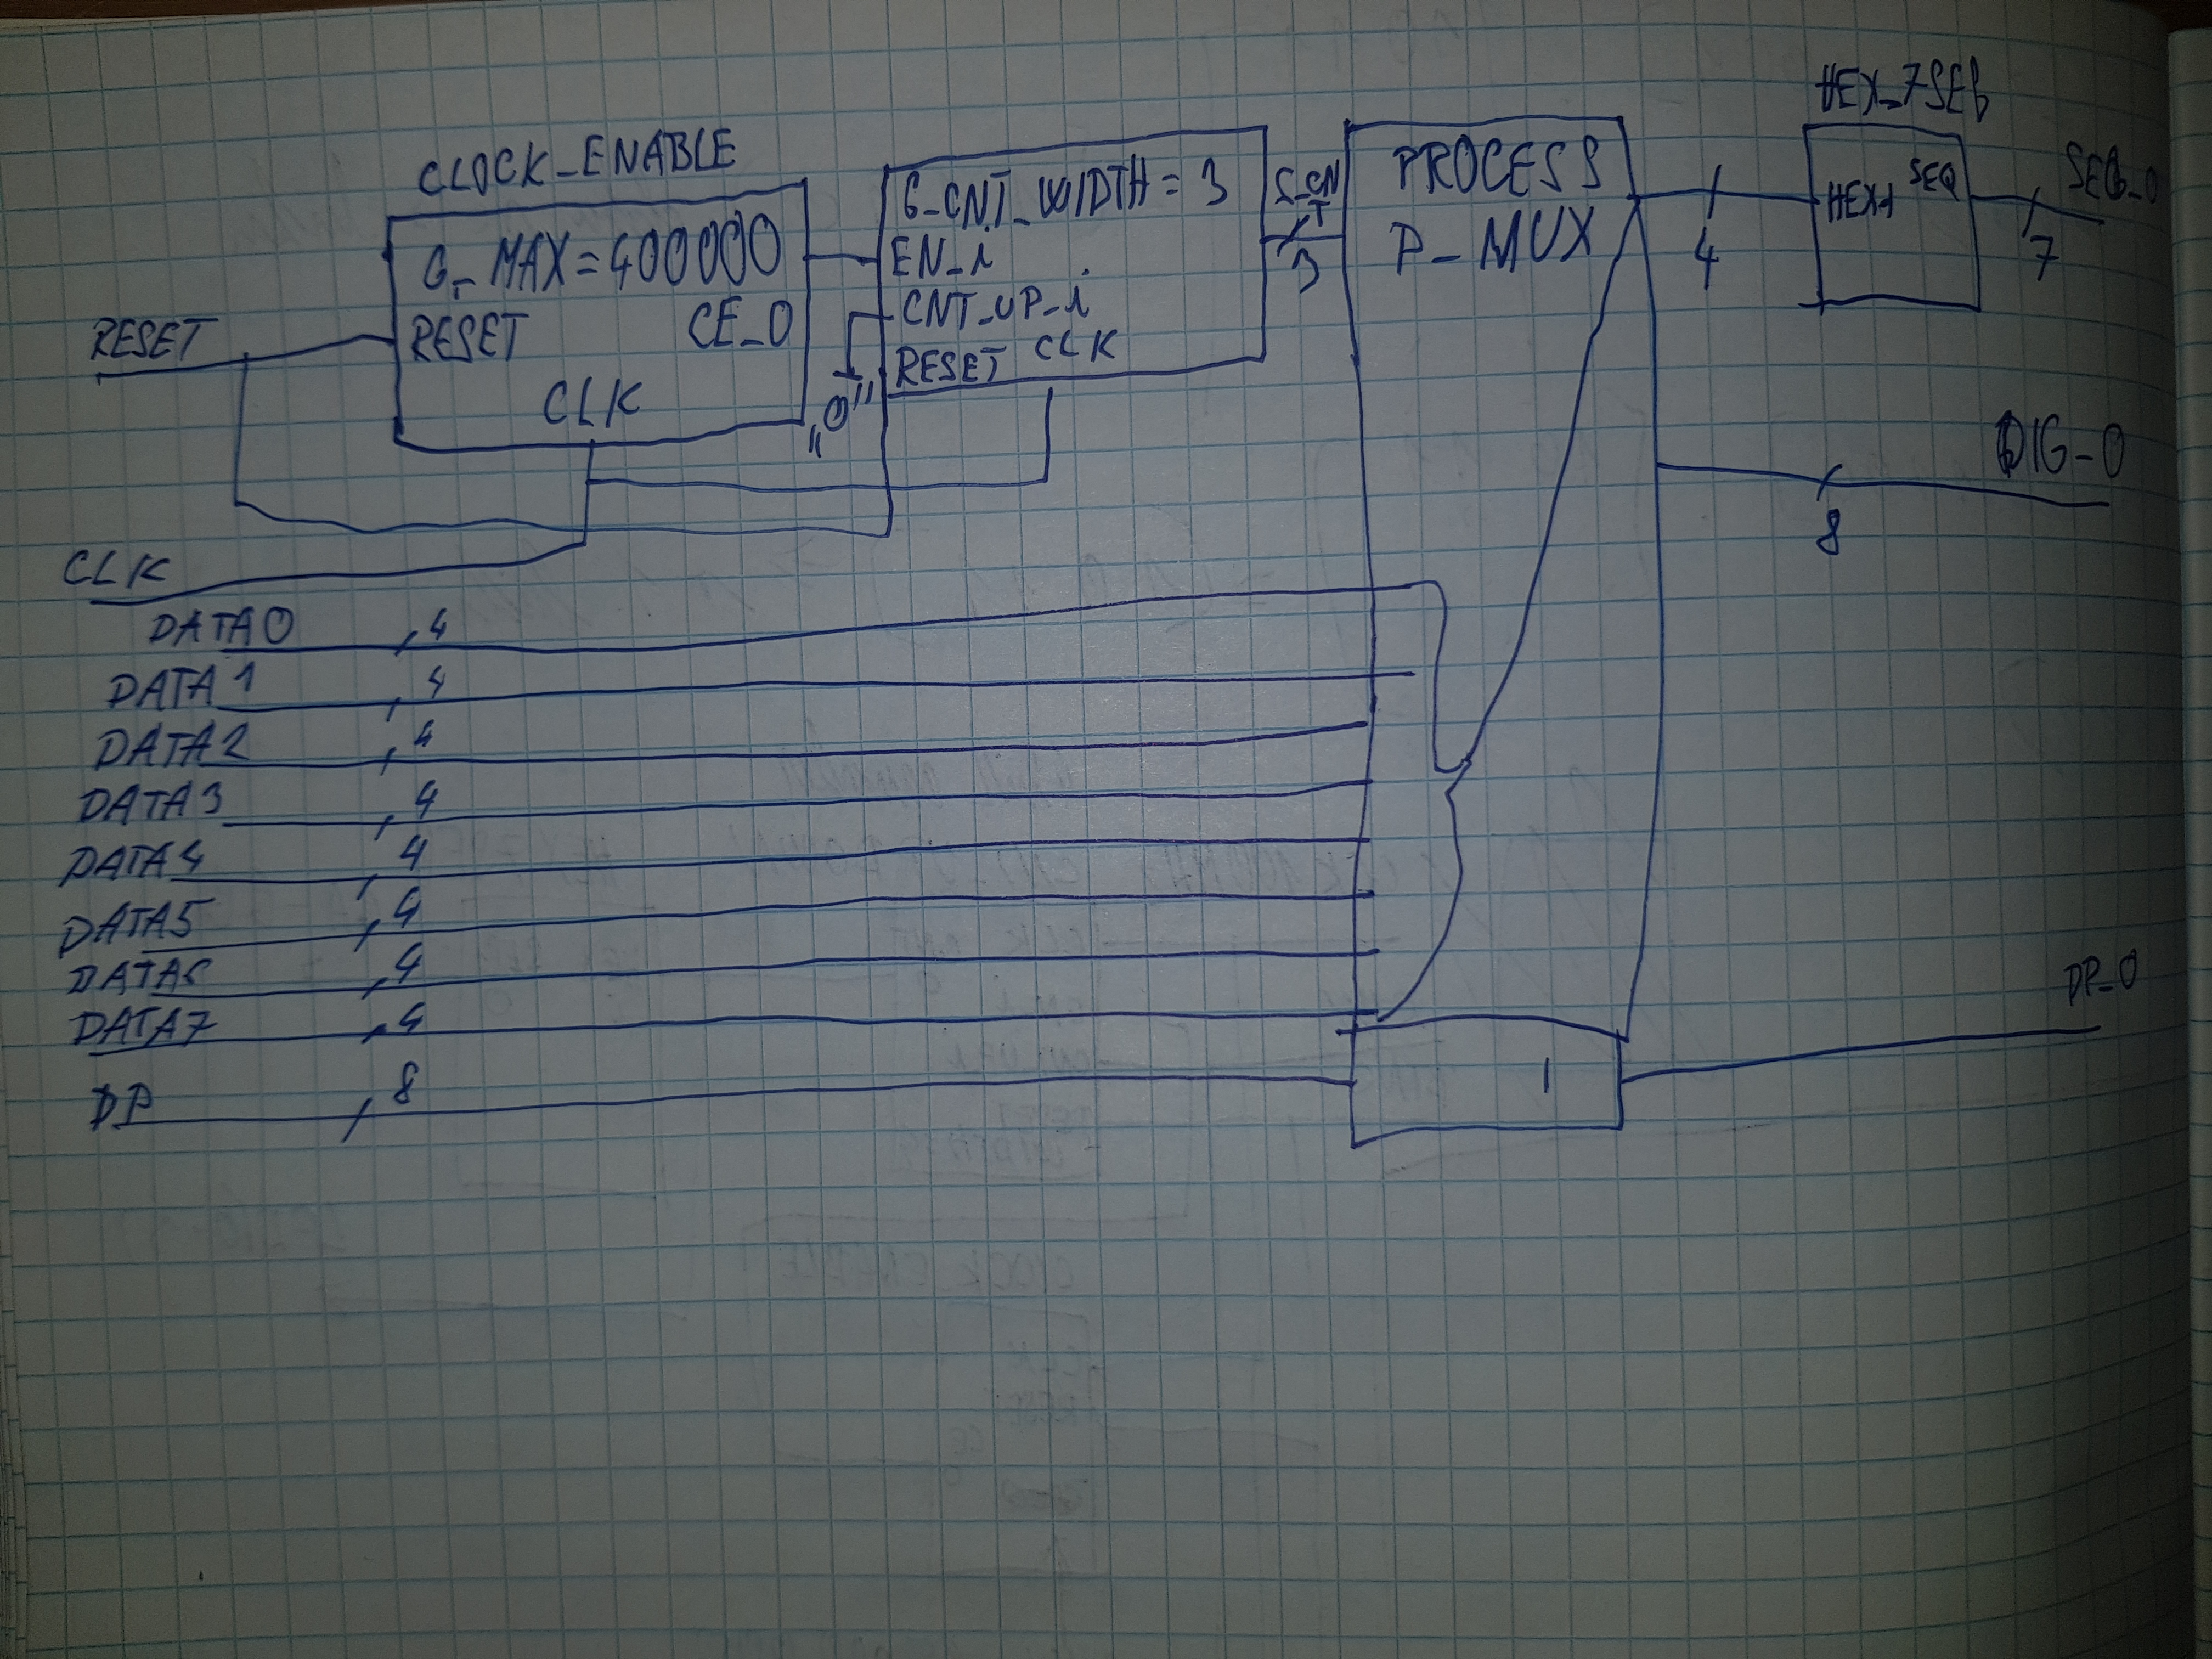 HEX_7SEG
CLOCK_ENABLE
G_MAX=400000
RESET CE_O
CLK
G_CNT_WIDTH = 3
EN_i
CNT_UP_i
RESET CLK
"0"
S_CNT
3
PROCESS
P_MUX
4
HEX_i SEQ
SEG_O
7
RESET
DIG_O
8
CLK
DATA0 4
DATA1 4
DATA2 4
DATA3 4
DATA4 4
DATA5 4
DATA6 4
DATA7 4
DP 8
1
DP_O